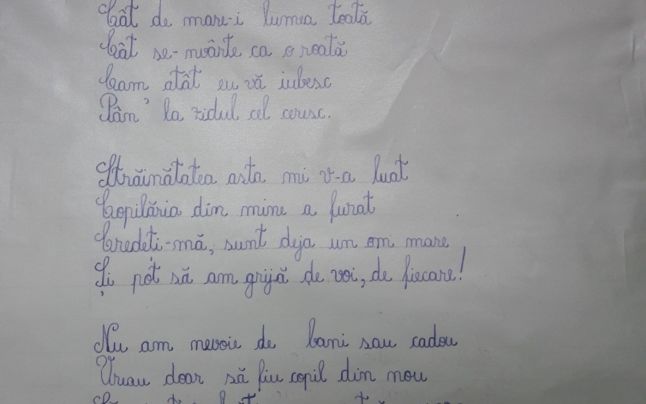 Cât de mare-i lumea toată
Cât se-nvârte ca o roată
Cam atât eu vă iubesc
Pân' la zidul cel ceresc.
Străinătatea asta mi v-a luat
Copilăria din mine a furat
Credeti-mă, sunt deja un om mare
Și pot să am grijă de voi, de fiecare!
Nu am nevoie de bani sau cadou
Vreau doar să fiu copil din nou